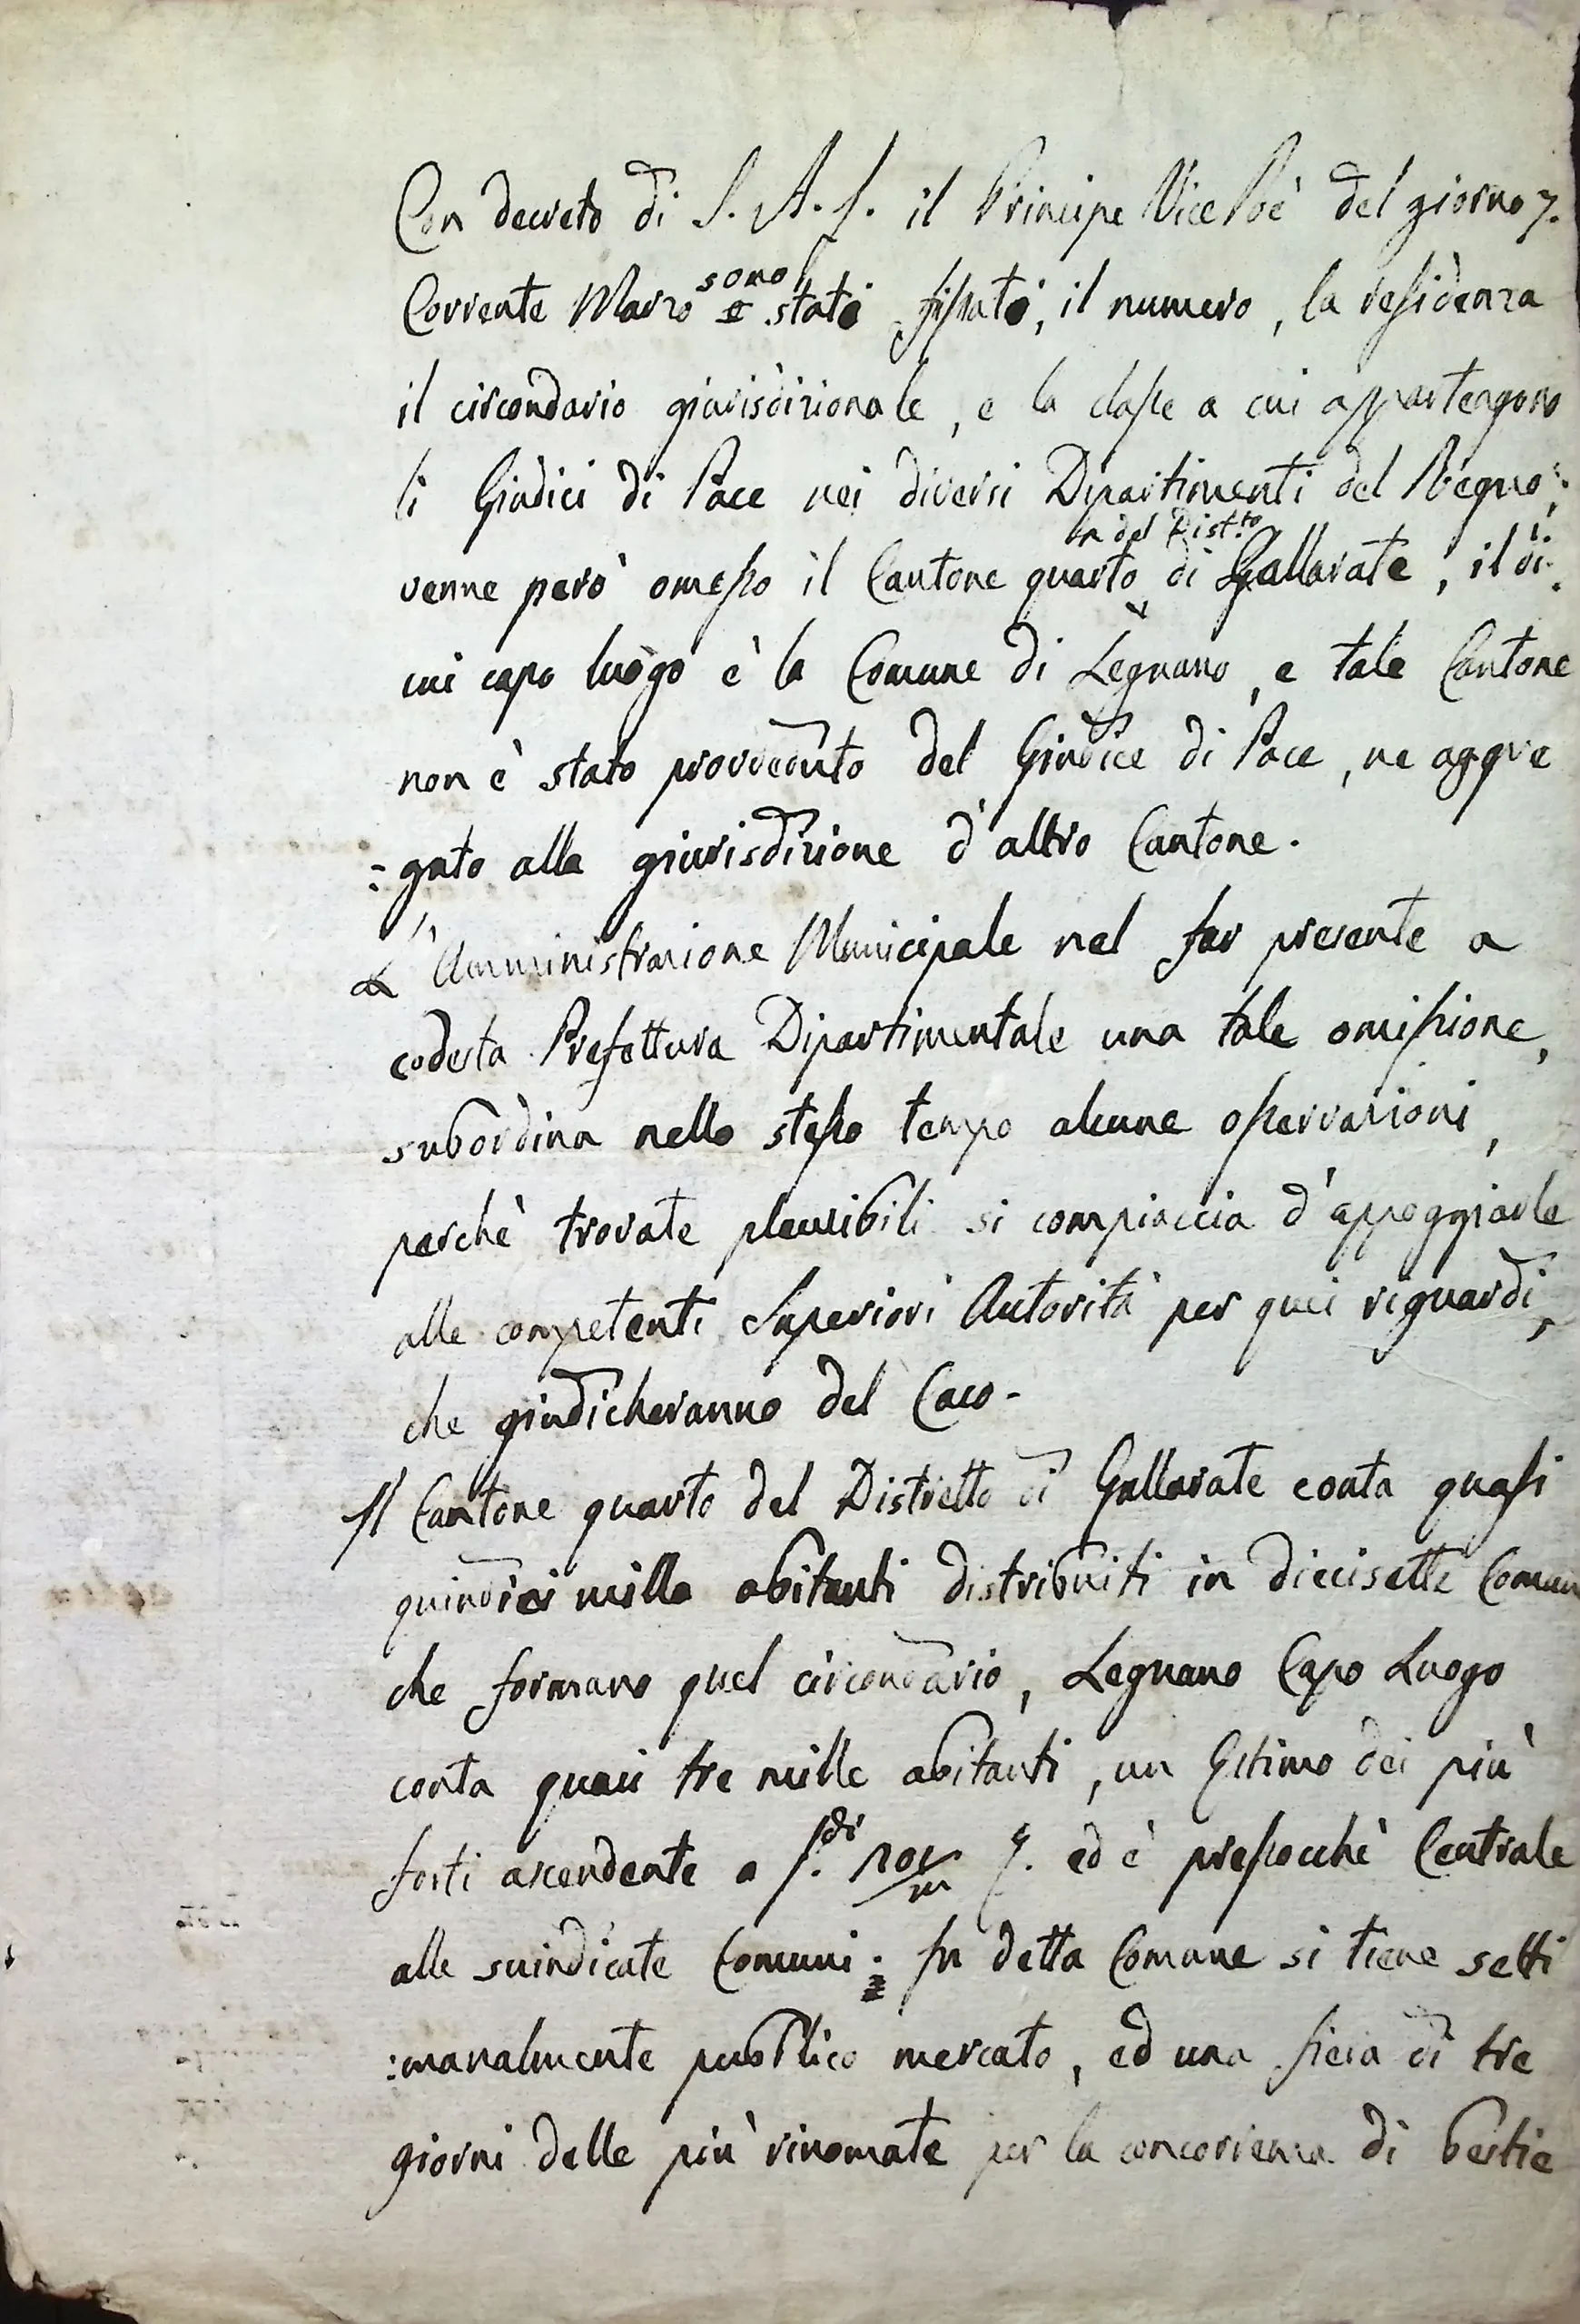 Con decreto di S. A. I. il Principe Vice Rè del giorno 7.
Corrente Marzo sono stati fissati, il numero, la residenza
il circondario giurisdizionale, e la classe a cui appartengono
li Giudici di Pace nei diversi Dipartimenti del Regno;
venne però omesso il Cantone quarto del Dist.to di Gallarate, il di
cui capo luogo è la Comune di Legnano, e tale Cantone
non è stato provveduto del Giudice di Pace, ne aggre
:gato alla giurisdizione d'altro Cantone.
L'Amministrazione Municipale nel far presente a
codesta Prefettura Dipartimentale una tale omissione,
subordina nello stesso tempo alcune osservazioni,
perchè trovate plausibili si compiaccia d'appoggiarle
alle competenti Superiori Autorità per quei riguardi,
che giudicheranno del Caso.
Il Cantone quarto del Distretto di Gallarate conta quasi
quindici mille abitanti distribuiti in diecisette Comun
che formano quel circondario, Legnano Capo Luogo
conta quasi tre mille abitanti, un Estimo dei più
forti ascendente a s.di ed è pressocchè Centrale
alle suindicate Comuni: In detta Comune si tiene setti
:manalmente pubblico mercato, ed una fiera di tre
giorni delle più rinomate per la concorrenza di bestie